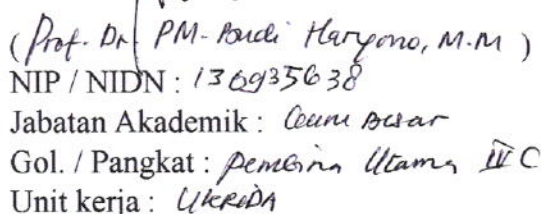 (Prof. Dr. PM. Budi Haryono, M.M)
NIP / NIDN : 130935638
Jabatan Akademik : Guru Besar
Gol. / Pangkat : Pembina Utama IV C
Unit kerja : UKRIDA